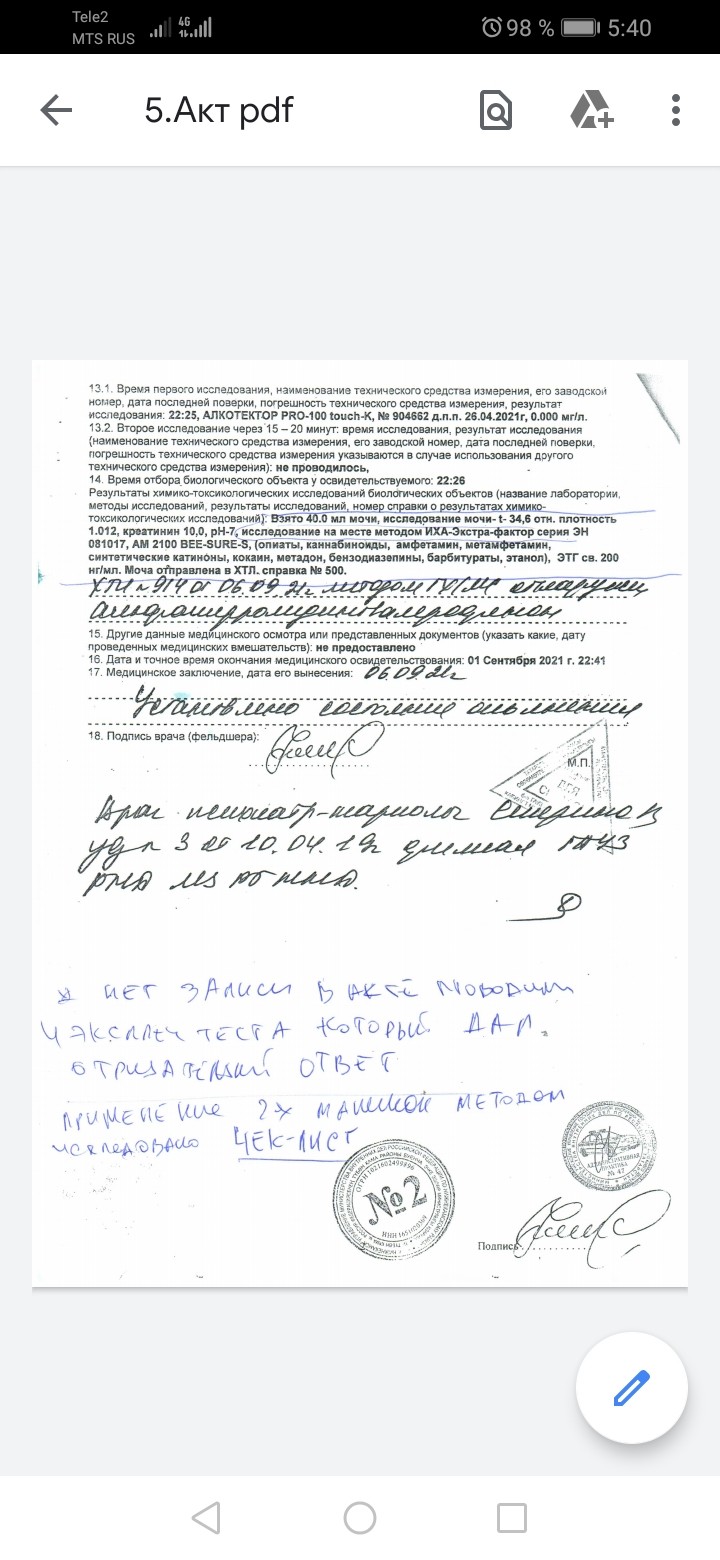 Tele2
MTS RUS
4G
98 %
5:40
5.Акт pdf
13.1. Время первого исследования, наименование технического средства измерения, его заводской
номер, дата последней поверки, погрешность технического средства измерения, результат
исследования: 22:25, АЛКОТЕКТОР PRO-100 touch-K, № 904662 д.п.п. 26.04.2021г, 0.000 мг/л.
13.2. Второе исследование через 15 – 20 минут: время исследования, результат исследования
(наименование технического средства измерения, его заводской номер, дата последней поверки,
погрешность технического средства измерения указываются в случае использования другого
технического средства измерения): не проводилось,
14. Время отбора биологического объекта у освидетельствуемого: 22:26
Результаты химико-токсикологических исследований биологических объектов (название лаборатории,
методы исследований, результаты исследований, номер справки о результатах химико-
токсикологических исследований): Взято 40.0 мл мочи, исследование мочи- t- 34,6 отн. плотность
1.012, креатинин 10,0, pH-7, исследование на месте методом ИХА-Экстра-фактор серия ЭН
081017, AM 2100 BEE-SURE-S, (опиаты, каннабиноиды, амфетамин, метамфетамин,
синтетические катиноны, кокаин, метадон, бензодиазепины, барбитураты, этанол), ЭТГ св. 200
нг/мл. Моча отправлена в ХТЛ. справка № 500.
ХТИ № 914 от 06.09.21г методом ГХ/МС обнаружен
Альфапирролидиновалерофенон
15. Другие данные медицинского осмотра или представленных документов (указать какие, дату
проведенных медицинских вмешательств): не предоставлено
16. Дата и точное время окончания медицинского освидетельствования: 01 Сентября 2021 г. 22:41
17. Медицинское заключение, дата его вынесения: 06.09.21г
Установлено состояние опьянения
18. Подпись врача (фельдшера):
М.П.
Врач психиатр-нарколог
уд № 3 от 10.04.19г ГАУЗ
РНД МЗ РТ
нет записи в акте
экспреч теста который дал
отрицательный ответ
применение 2х методом
исследовано чек-лист
№2
ОГРН 1021602499896
АДМИНИСТРАТИВНАЯ
ПРАКТИКА
№ 42
Подпись